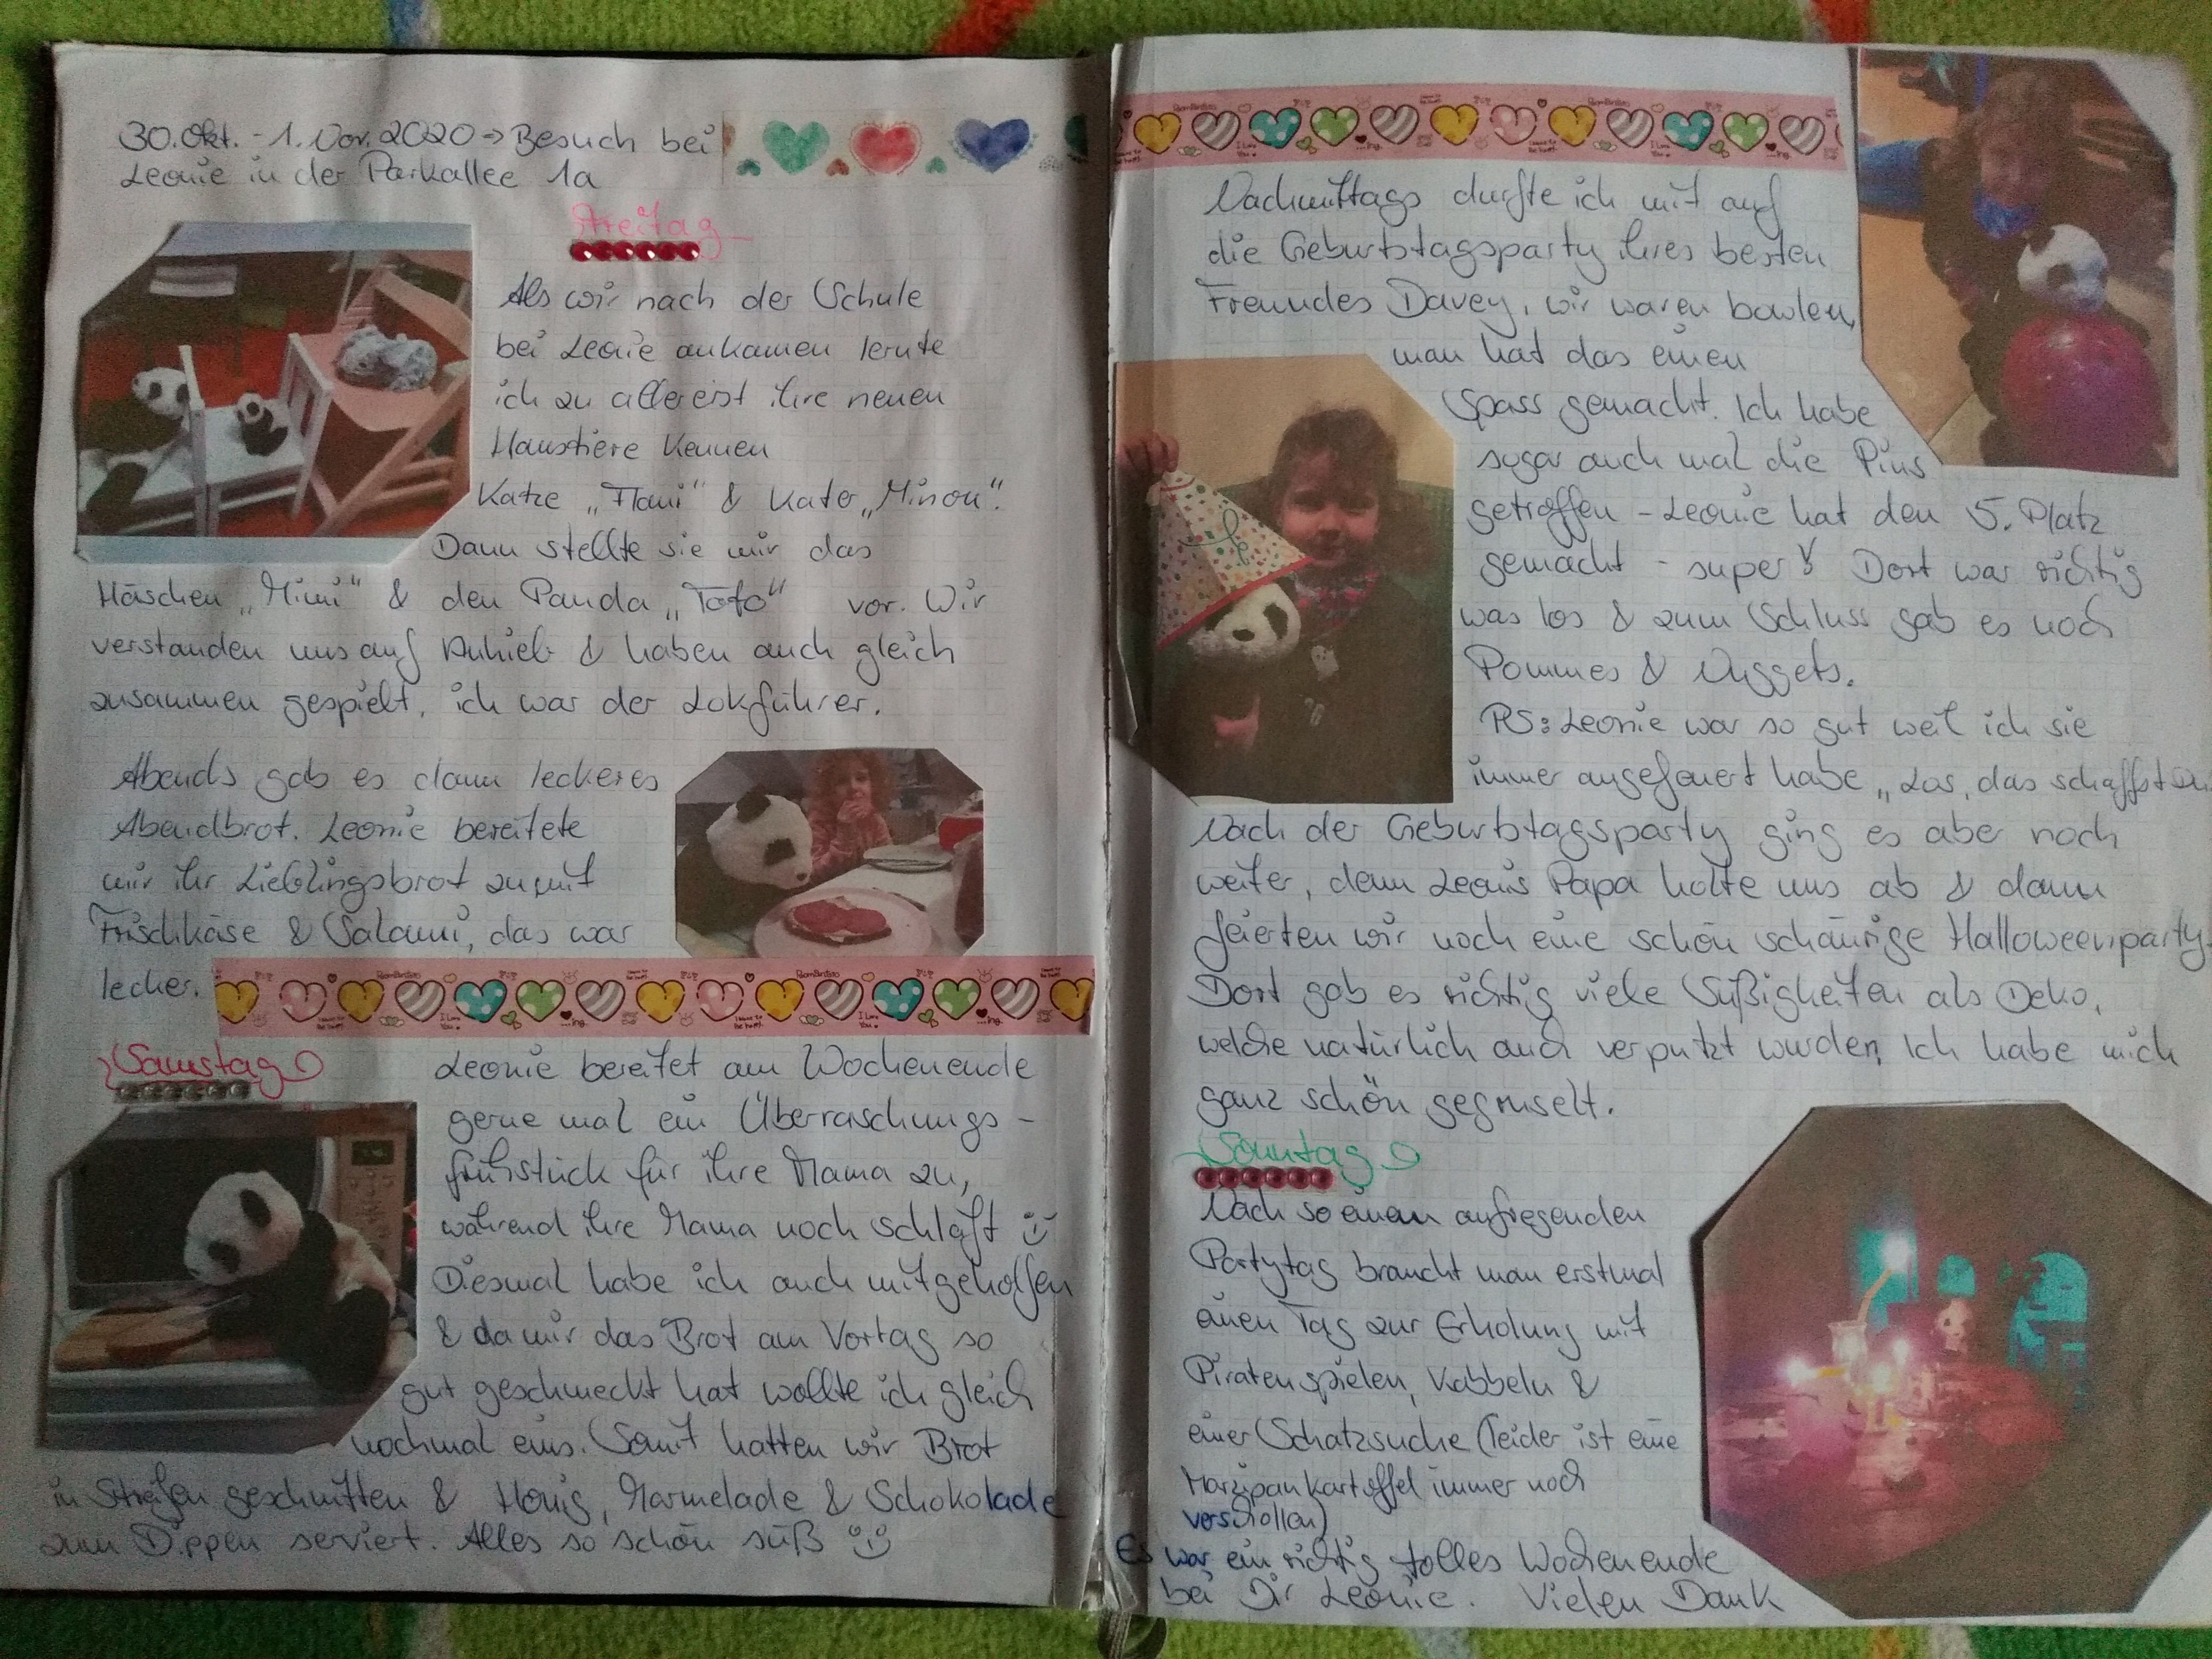 30. Okt. - 1. Nov. 2020 → Besuch bei
Leonie in der Parkallee 1a
Freitag
Als wir nach der Schule
bei Leonie ankamen lernte
ich zu allererst ihre neuen
Haustiere kennen
Katze „Flaui“ & Kater „Minou“.
Dann stellte sie mir das
Häschen „Mimi“ & den Panda „Tofo“ vor. Wir
verstanden uns auf Anhieb & haben auch gleich
zusammen gespielt, ich war der Lokführer.
Abends gab es dann leckeres
Abendbrot. Leonie bereitete
mir ihr Lieblingsbrot zu mit
Frischkäse & Salami, das war
lecker.
Samstag
Leonie bereitet am Wochenende
gerne mal ein Überraschungs-
frühstück für ihre Mama zu,
während ihre Mama noch schläft
Diesmal habe ich auch mitgeholfen
& da mir das Brot am Vortag so
gut geschmeckt hat wollte ich gleich
nochmal eins. Somit hatten wir Brot
in Streifen geschnitten & Honig, Marmelade & Schokolade
zum Dippen serviert. Alles so schön süß
Nachmittags durfte ich mit auf
die Geburtstagsparty ihres besten
Freundes Davey, wir waren bowlen,
man hat das einen
Spass gemacht. Ich habe
sogar auch mal die Pins
getroffen - Leonie hat den 5. Platz
gemacht - super! Dort war richtig
was los & zum Schluss gab es noch
Pommes & Nuggets.
PS: Leonie war so gut weil ich sie
immer angefeuert habe „Los, das schaffst Du
Nach der Geburtstagsparty ging es aber noch
weiter, denn Leonis Papa holte uns ab & dann
feierten wir noch eine schön schaurige Halloweenparty.
Dort gab es richtig viele Süßigkeiten als Deko,
welche natürlich auch verputzt wurden, Ich habe mich
ganz schön gegruselt.
Sonntag
Nach so einem aufregenden
Partytag braucht man erstmal
einen Tag zur Erholung mit
Piraten spielen, Kabbeln &
einer Schatzsuche (leider ist eine
Marzipankartoffel immer noch
verschollen)
Es war ein richtig tolles Wochenende
bei Dir Leonie. Vielen Dank